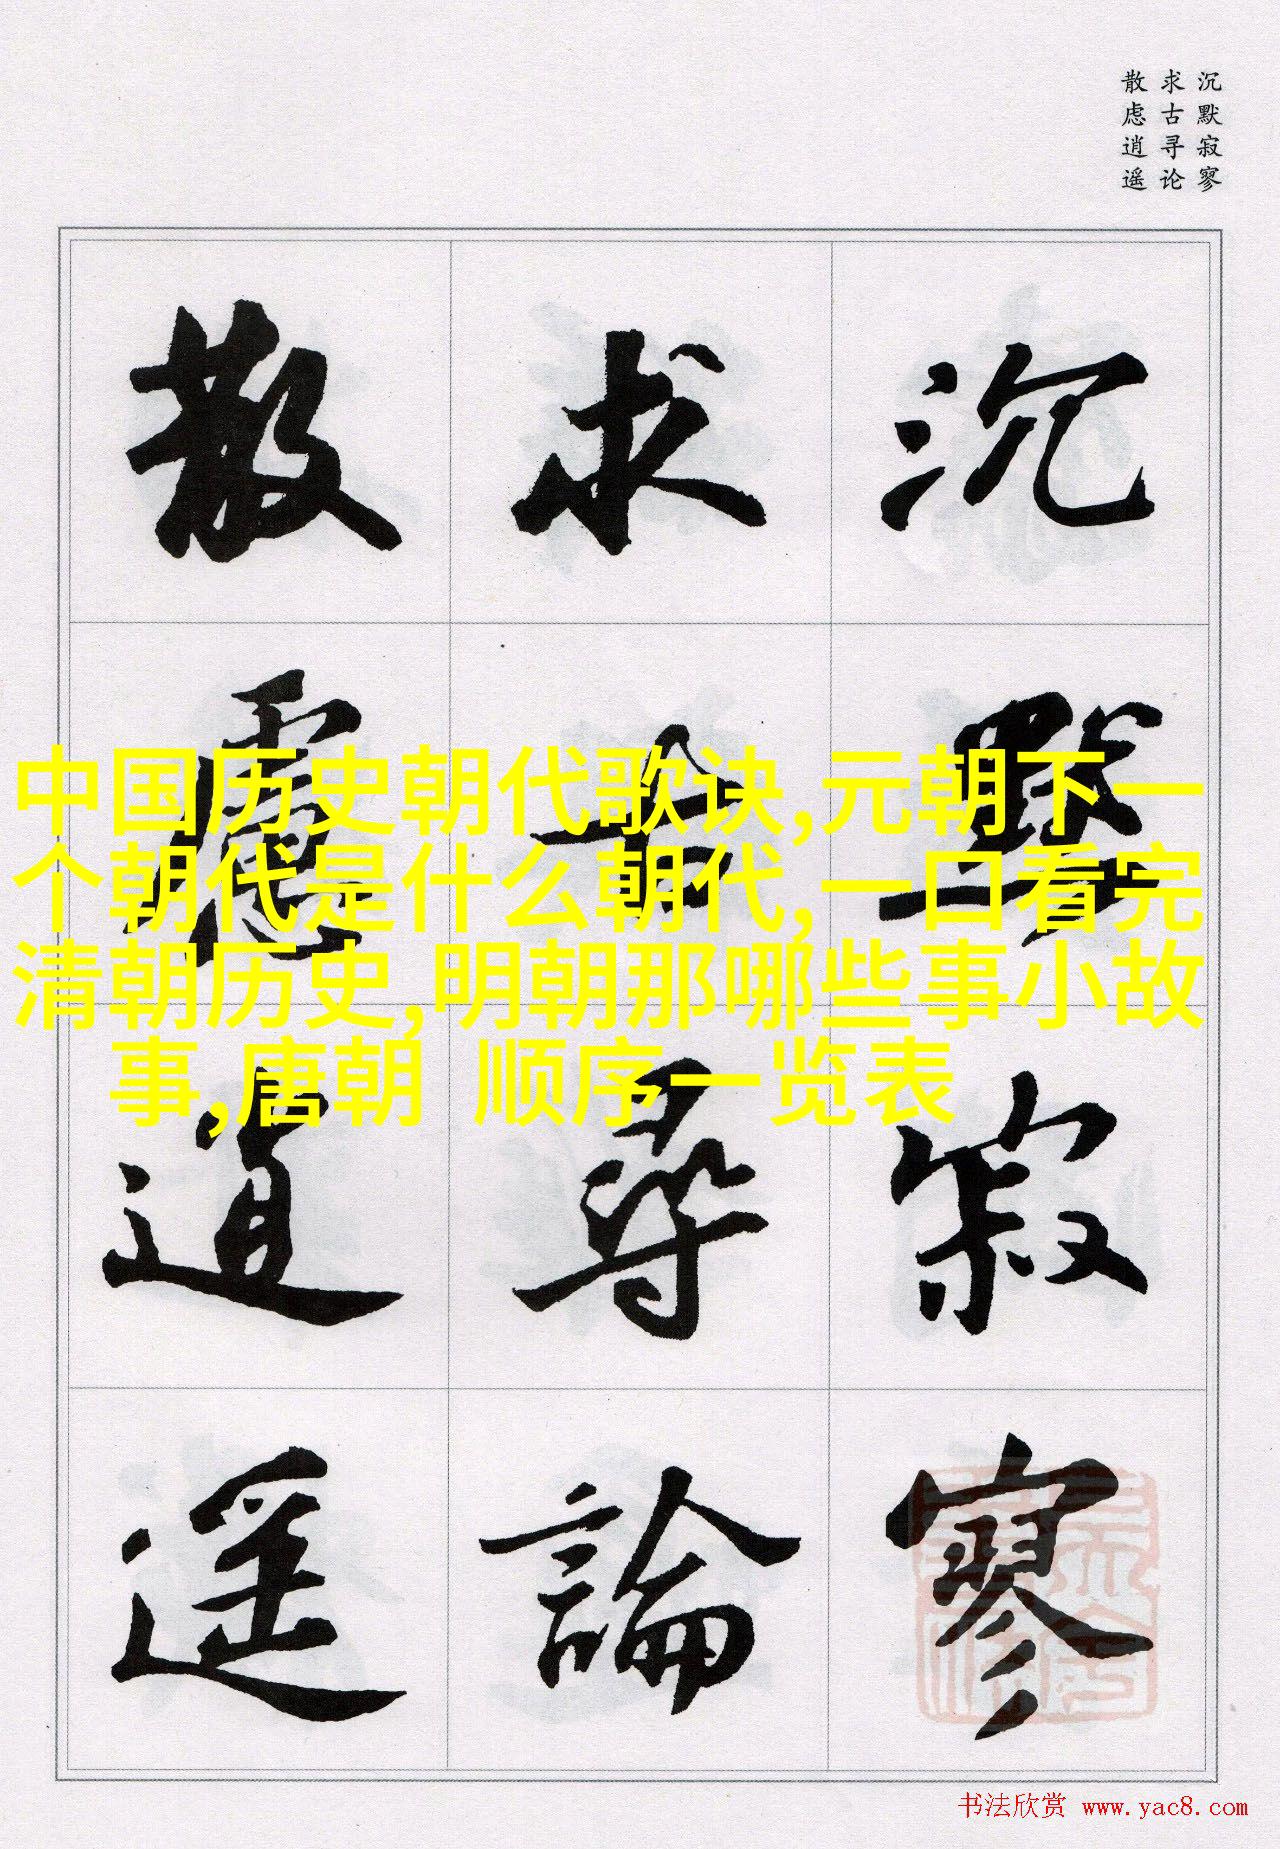 沉默寂寥
求古寻论
散虑逍遥
沉默寂寥
求古尋論
散慮逍遥
中国历史朝代歌诀,元朝下一
个朝代是什么朝代,一口看完
清朝历史,明朝那哪些事小故
事,唐朝 顺序一览表
书法欣赏 www.yac8.com